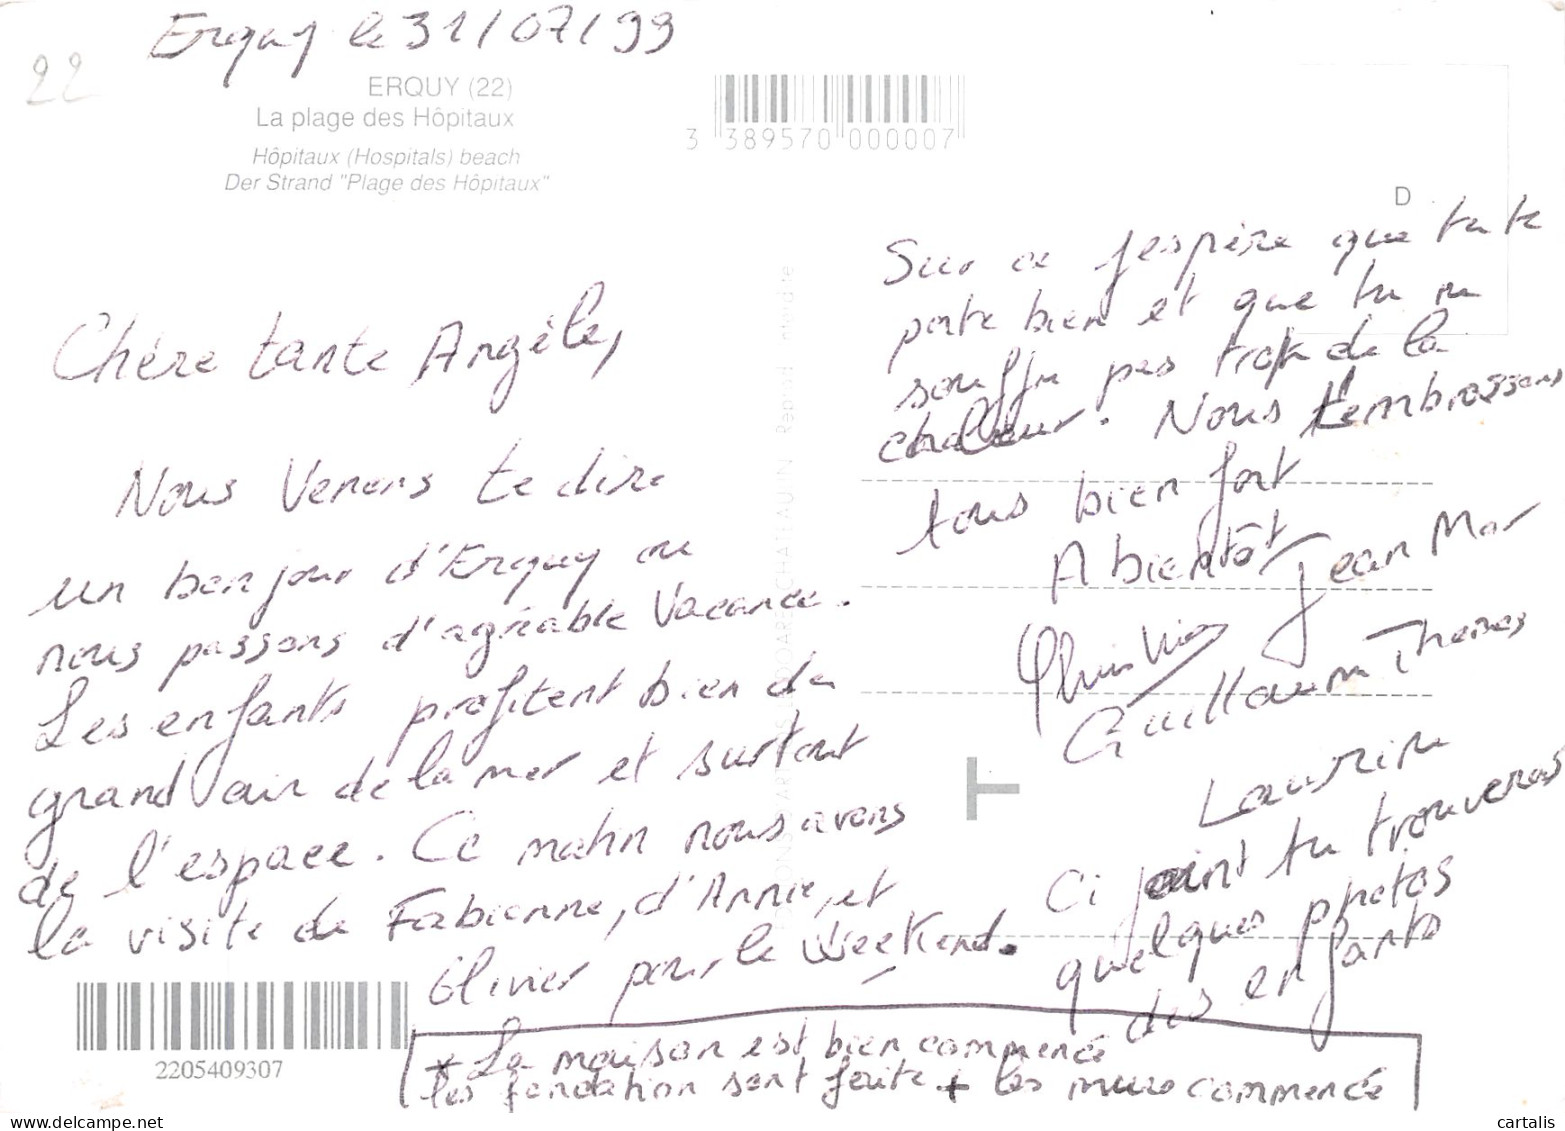 Erquy le 31/07/99
22
ERQUY (22)
La plage des Hôpitaux
Hôpitaux (Hospitals) beach
Der Strand "Plage des Hôpitaux"
3 389570 000007
D
Chère tante Angèle,
Nous Venons te dire
un bonjour d'Erquy ou
nous passons d'agréable Vacance.
Les enfants profitent bien du
grand air de la mer et surtout
de l'espace. Ce matin nous avons
la visite de Fabienne, d'Annie, et
Olivier pour le Weekend.
Sur ce j'espère que ta te
porte bien et que tu ne
souffre pas trop de la
chaleur. Nous t'embrassons
tous bien fort
A bientôt Jean Mar
Guillaume Thomas
Laurine
Ci joint tu trouveras
quelques photos
des enfants
* La maison est bien commencé
les fondation sont faite + les murs commencé
2205409307
Reprod. interdite
www.delcampe.net
cartalis